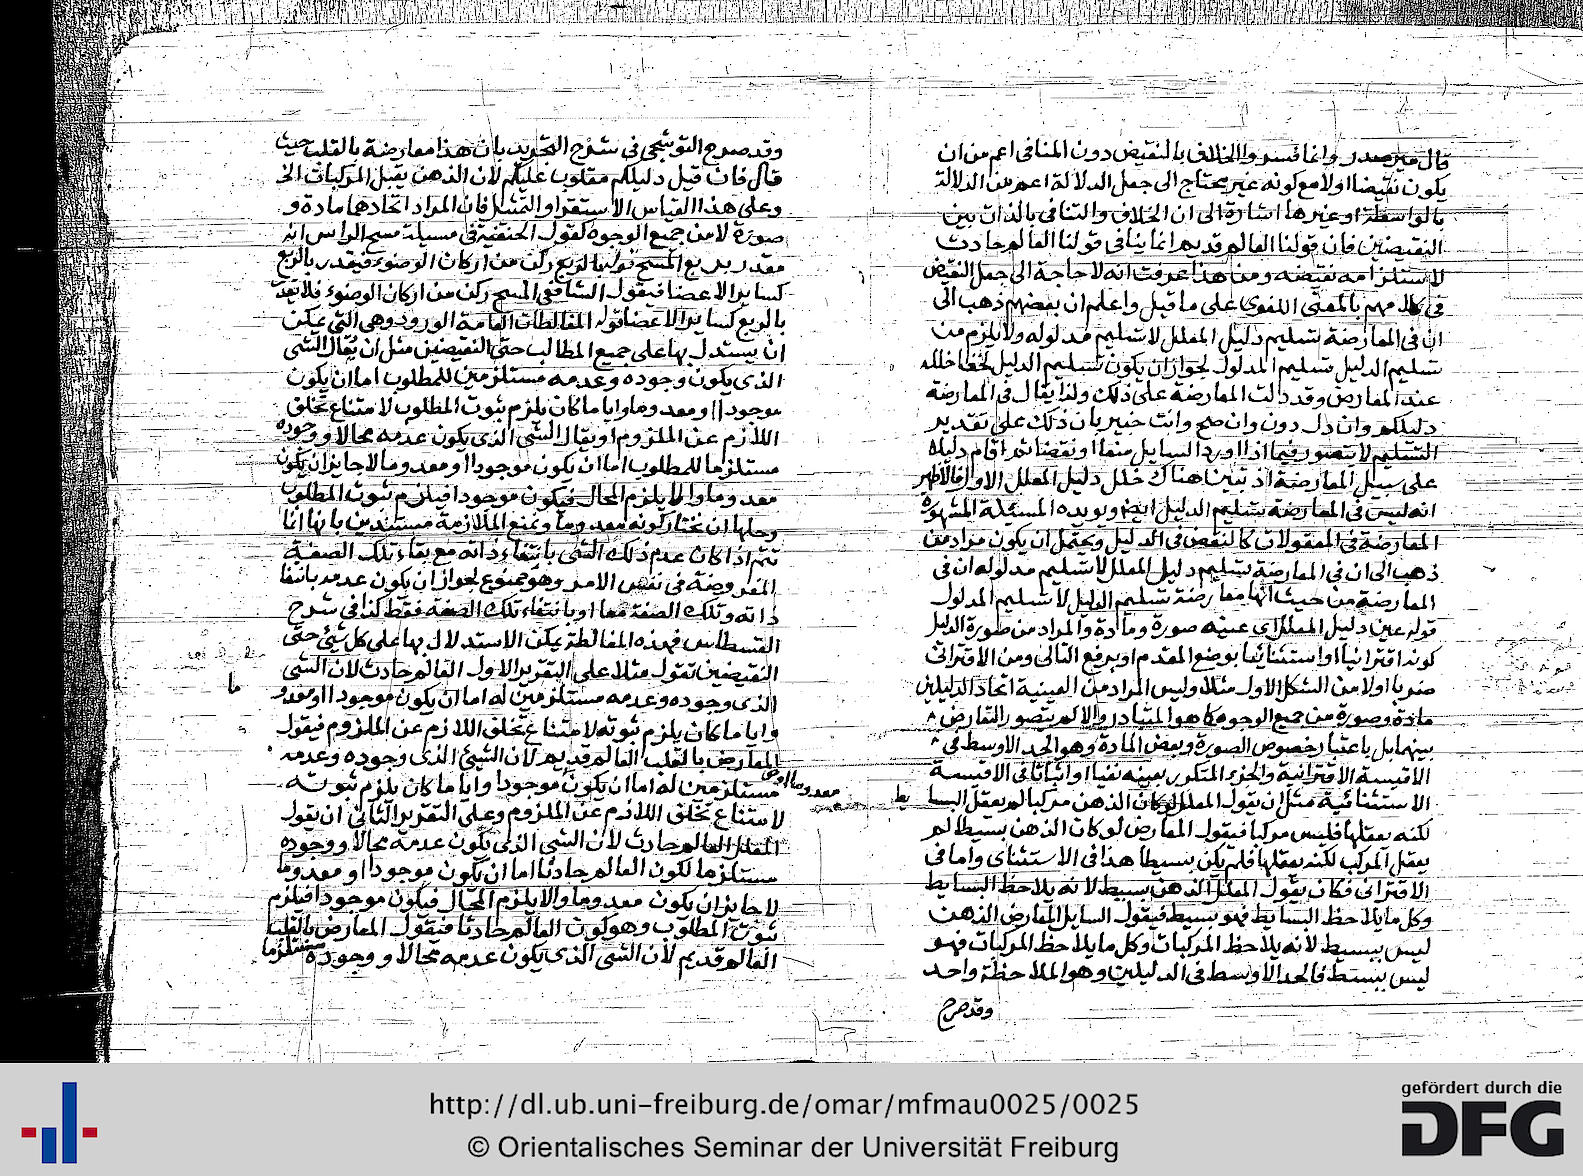 قال ميرصدر وانما فسروا الخلاف بالنقيض دون المنافى اعم من ان
يكون نقيضا اولا مع كونه غير محتاج الى جعل الدلالة اعم من الدلالة
بالواسطة او غيرها اشارة الى ان الخلاف والتنافى بالذات بين
النقيضين فان قولنا العالم قديم انما ينافى قولنا العالم حادث
لاستلزامه نقيضه ومن هذا عرفت انه لا حاجة الى جعل النقيض
فى كلامهم بالمعنى اللغوى على ما قيل واعلم ان بعضهم ذهب الى
ان فى المعارضة تسليم دليل المعلل لا تسليم مدلوله ولا يلزم من
تسليم الدليل تسليم المدلول لجواز ان يكون تسليم الدليل لخفا خلله
عند المعارض وقد دلت المعارضة على ذلك ولذا يقال فى المعارضة
دليلكم وان دل دون وان صح وانت خبير بان ذلك على تقدير
التسليم لا يتصور فيما اذا اورد السايل منعا او نقضا ثم اقام دليله
على سبيل المعارضة اذ تبين هناك خلل دليل المعلل الاول فالاظهر
انه ليس فى المعارضة تسليم الدليل ايض ويويده المسئلة المشهورة
المعارضة فى المعقولات كالنقض فى الدليل ويحتمل ان يكون مراد من
ذهب الى ان فى المعارضة تسليم دليل المعلل لا تسليم مدلوله ان فى
المعارضة من حيث انها معارضة تسليم الدليل لا تسليم المدلول
قوله عين دليل المعلل اى عينه صورة ومادة والمراد من صورة الدليل
كونه اقترانيا او استثنائيا بوضع المقدم او برفع التالى ومن الاقترانى
ضربا اولا من الشكل الاول مثلا وليس المراد من العينية اتحاد الدليلين
مادة وصورة من جميع الوجوه كما هو المتبادر والا لم يتصور التعارض
بينهما بل باعتبار خصوص الصورة وبعض المادة وهو الحد الاوسط فى
الاقيسة الاقترانية والجزء المتكرر بعينه نفيا او اثباتا فى الاقيسة
الاستثنائية مثل ان يقول المعلل لو كان الذهن مركبا لم يعقل البسا يط
لكنه يعقلها فليس مركبا فيقول المعارض لو كان الذهن بسيطا لم
يعقل المركب لكنه يعقلها فلم يكن بسيطا هذا فى الاستثناى واما فى
الاقترانى فكان يقول المعلل الذهن بسيط لانه يلاحظ البسايط
وكل ما يلاحظ البسايط فهو بسيط فيقول السايل المعارض الذهن
ليس ببسيط لانه يلاحظ المركبات وكل ما يلاحظ المركبات فهو
ليس ببسيط فالحد الاوسط فى الدليلين وهو الملاحظة واحد
وقد صرح
وقد صرح القوشجى فى شرح التجريد بان هذا معارضة بالقلب حيث
قال فان قيل دليلكم مقلوب عليكم لان الذهن يقبل المركبات الخ
وعلى هذا القياس الاستقرا والتمثيل فان المراد اتحادهما مادة و
صورة لا من جميع الوجوه كقول الحنفية فى مسيلة مسح الراس انه
مقدر بربع المسح ركن من اركان الوضوء فيقدر بالربع
كساير الاعضا فيقول الشافعى المسح ركن من اركان الوضوء فلا يقدر
بالربع كساير الاعضا قوله المغالطات العامة الورود وهى التى يمكن
ان يستدل بها على جميع المطالب حتى النقيضين مثل ان يقال الشى
الذى يكون وجوده وعدمه مستلزمين للمطلوب اما ان يكون
موجودا او معدوما وايا ما كان يلزم ثبوت المطلوب لامتناع تخلف
اللازم عن الملزوم او يقال الشى الذى يكون عدمه محالا ووجوده
مستلزما للمطلوب اما ان يكون موجودا او معدوما لا جايز ان يكون
معدوما والا يلزم المحال فيكون موجودا فيلزم ثبوت المطلوب
وحلها ان نختار كونه معدوما ونمنع الملازمة مستندين بانها انما
تتم اذا كان عدم ذلك الشى بانتفاء ذاته مع بقاء تلك الصفة
المفروضة فى نفس الامر وهو ممنوع لجواز ان يكون عدمه بانتفا
ذاته وتلك الصفة معا او بانتفاء تلك الصفة فقط كذا فى شرح
القسطاس فهذه المغالطة يمكن الاستدلال بها على كل شئ حتى
النقيضين تقول مثلا على التقرير الاول العالم حادث لان الشى
الذى وجوده وعدمه مستلزمين له اما ان يكون موجودا او معدو ما
وايا ما كان يلزم ثبوته لامتناع تخلف اللازم عن الملزوم فيقول
المعارض بالقلب العالم قديم لان الشئ الذى وجوده وعدمه
مستلزمين له اما ان يكون موجودا او معدوما وايا ما كان يلزم ثبوته
لامتناع تخلف اللازم عن الملزوم وعلى التقرير الثانى ان يقول
المعلل العالم حادث لان الشى الذى يكون عدمه محالا ووجوده
مستلزما لكون العالم حادثا اما ان يكون موجودا او معدوما
لا جايز ان يكون معدوما والا يلزم المحال فيكون موجودا فيلزم
ثبوت المطلوب وهو كون العالم حادثا فيقول المعارض بالقلب
العالم قديم لان الشى الذى يكون عدمه محالا ووجوده مستلزما
http://dl.ub.uni-freiburg.de/omar/mfmau0025/0025
© Orientalisches Seminar der Universität Freiburg
gefördert durch die
DFG